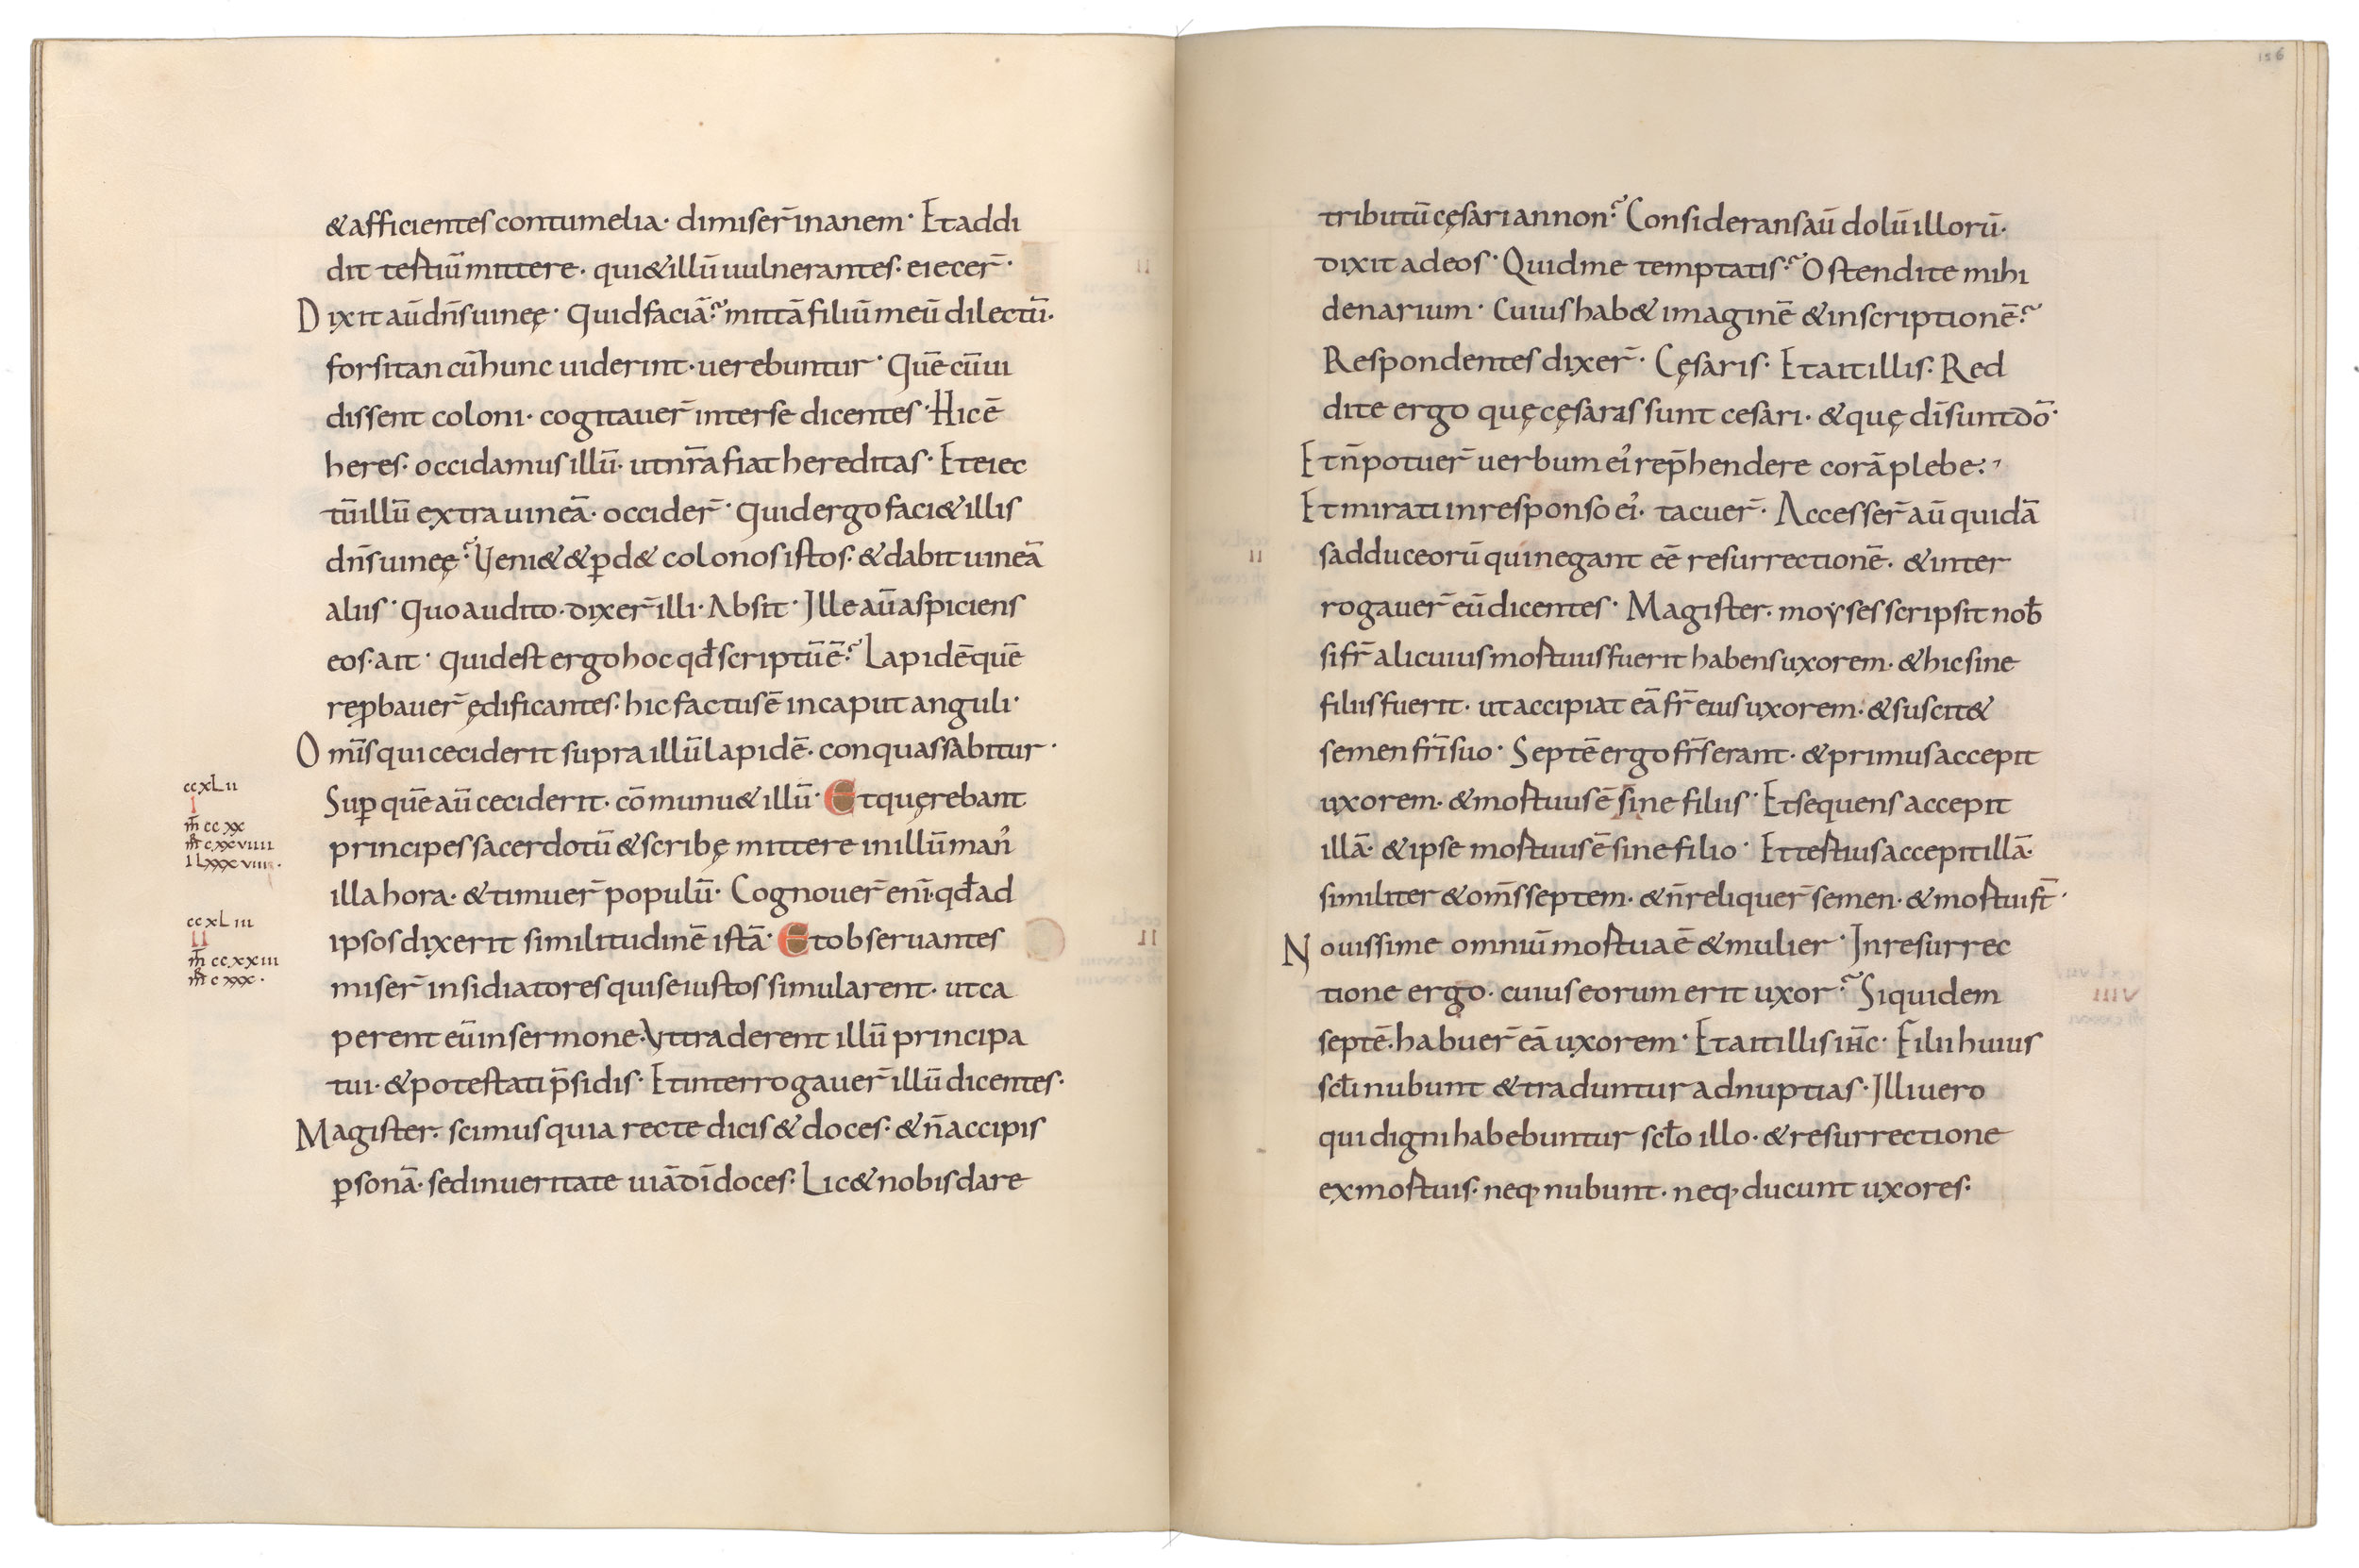 &afficientes contumelia · dimiser̄ inanem · Et addi
dit tertiū mittere · qui & illū uulnerantes · eiecer̄ ·
Dixit aū dn̄s uineę · Quid faciā? mittā filiū meū dilectū ·
forsitan cū hunc uiderint · uerebuntur · Quē cū ui
dissent coloni · cogitauer̄ inter se dicentes · Hic ē
heres · occidamus illū · ut nr̄a fiat hereditas · Et eiec
tū illū extra uineā · occider̄ · Quid ergo faci& illis
dn̄s uineę? Ueni& & ꝑd& colonos istos · & dabit uineā
aliis · Quo audito · dixer̄ illi · Absit · Ille aū aspiciens
eos · ait · quid est ergo hoc qđ scriptū ē? Lapidē quē
reꝓbauer̄ ędificantes · hic factus ē in caput anguli ·
Omīs qui ceciderit supra illū lapidē · conquassabitur ·
ccxLii
Suꝑ quē aū ceciderit · cōminu& illū · Et quęrebant
i
m̄ ccxx
principes sacerdotū & scribę mittere in illū man᾿
mr̄ cxxviiii
i Lxxxviii ·
illa hora · & timuer̄ populū · Cognouer̄ enī · qđ ad
ccxLiii
ipsos dixerit similitudinē istā · Et obseruantes
ii
m̄ ccxxiii
miser̄ insidiatores qui se iustos simularent · ut ca
mr̄ cxxx ·
perent eū in sermone · Ut traderent illū principa
tui · & potestati p̄sidis · Et interrogauer̄ illū dicentes ·
Magister · scimus quia recte dicis & doces · & n̄ accipis
ꝑsonā · sed in ueritate uiā dī doces · Lic& nobis dare
156
tributū cęsari an non? Considerans aū dolū illorū ·
dixit ad eos · Quid me temptatis? Ostendite mihi
denarium · Cuius hab& imaginē & inscriptionē?
Respondentes dixer̄ · Cęsaris · Et ait illis · Red
dite ergo quę cęsaris sunt cesari · & quę dī sunt dō ·
Et n̄ potuer̄ uerbum ei᾿ rep̄hendere corā plebe ·
Et mirati in responso ei᾿ · tacuer̄ · Accesser̄ aū quidā
sadduceorū qui negant eē resurrectionē · & inter
rogauer̄ eū dicentes · Magister · moyses scripsit noƀ
si fr̄ alicuius mortuus fuerit habens uxorem · & hic sine
filiis fuerit · ut accipiat eā fr̄ eius uxorem · & suscit&
semen fr̄i suo · Septē ergo fr̄s erant · & primus accepit
uxorem · & mortuus ē sine filiis · Et sequens accepit
illā · & ipse mortuus ē sine filio · Et tertius accepit illā ·
similiter & om̄s septem · & n̄ reliquer̄ semen · & mortui st̄ ·
Nouissime omniū mortua ē & mulier · In resurrec
tione ergo · cuius eorum erit uxor? Siquidem
septē · habuer̄ eā uxorem · Et ait illis ih̄c · Filii huius
scł̄i nubunt & traduntur ad nuptias · Illi uero
qui digni habebuntur scł̄o illo · & resurrectione
ex mortuis · neq; nubunt · neq; ducunt uxores ·